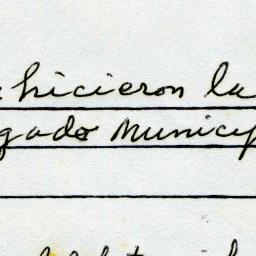 hicieron la
gado Municip